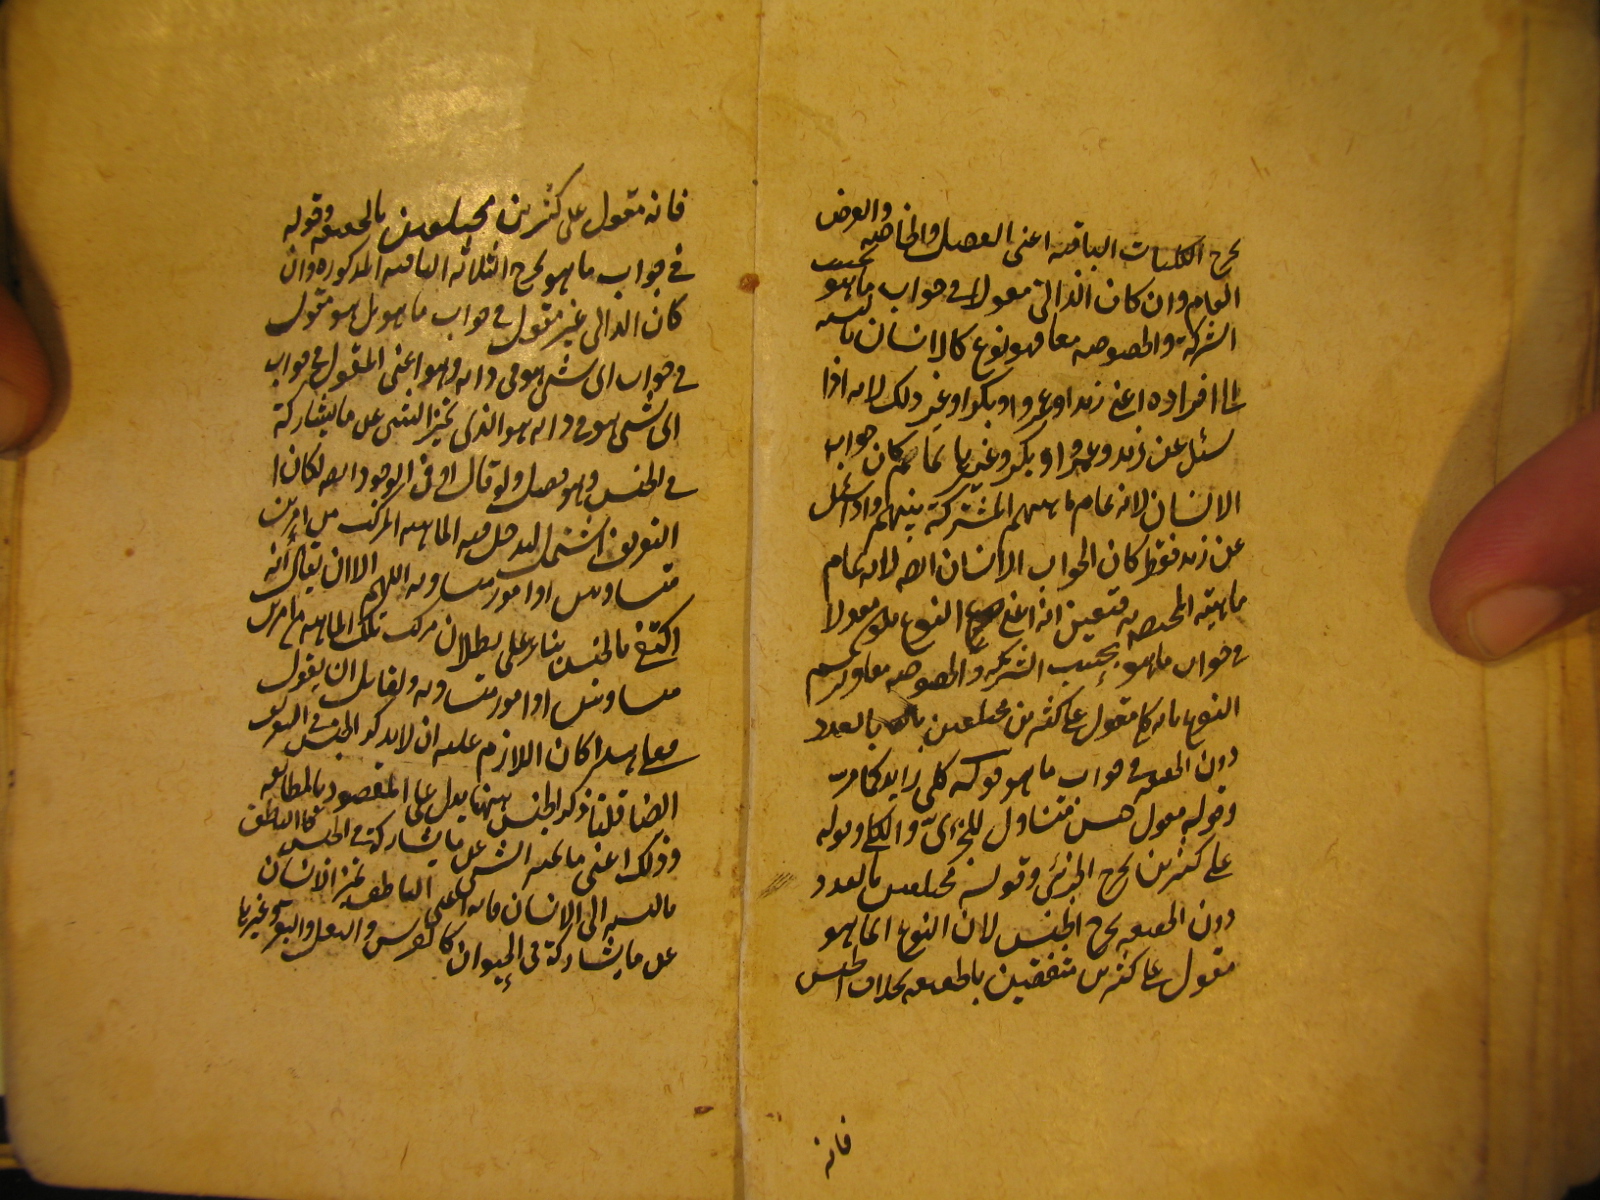 يخرج الكليات الباقيه اعنى الفصل والخاصه والعرض
العام وان كان الذاتى مقولا فى جواب ماهو بحسب
الشركة والخصوصيه معا فهو نوع كالانسان بالنسبه
الى افراده اعنى زيد او عمرو او بكر او غير ذلك لانه اذا
سئل عن زيد وعمرو او بكر وغيرها بما هم كان جواب
الانسان لانه تمام ماهيتهم المشتركة بينهم واذا سئل
عن زيد فقط كان الجواب الانسان ايضه لانه تمام
ماهيته المختصه به فتعين انه اعنى النوع يكون مقولا
فى جواب ماهو بحسب الشركه والخصوصيه معا ويرسم
النوع بانه كلى مقول على كثيرين مختلفين بالعدد
دون الحقيقه فى جواب ما هو قوله كلى زايد كما مر
وقوله مقول جنس متناول للجزئى والكلى وقوله
على كثيرين يخرج الجزئى وقوله مختلفين بالعدد
دون الحقيقه يخرج الجنس لان النوع انما هو
مقول على كثيرين متفقين بالحقيقه بخلاف الجنس
فانه
فانه مقول على كثيرين مختلفين بالحقيقه وقوله
فى جواب ما هو يخرج الثلاثه الباقيه المذكوره وان
كان الذاتى غير مقول فى جواب ما هو بل هو مقول
فى جواب اى شئ هو فى ذاته وهو اعنى المقول فى جواب
اى شئ هو فى ذاته هو الذى يميز الشئ عن ما يشاركة
فى الجنس وهو فصل ولو قال او فى الوجود ايضه لكان
التعريف اشتمل ليدخل فيه الماهيه المركبه من امرين
متساويين او امور متساويه اللهم الا ان يقال انه
اكتفى بالجنس بناء على بطلان تركب تلك الماهيه من امرين
متساويين او امور متساويه ولقايل ان يقول
فعلى هذا كان اللازم عليه ان لا يذكر الجنس فى التعريف
ايضا قلنا ذكر الجنس ههنا يدل على المقصود بالمطابقه
وذلك اعنى ما يميز الشئ عن ما يشاركة فى الجنس كالناطق
بالنسبه الى الانسان فانه اعنى الناطق يميز الانسان
عن ما يشاركة فى الحيوان كالفرس والبغل والبقر وغيرها